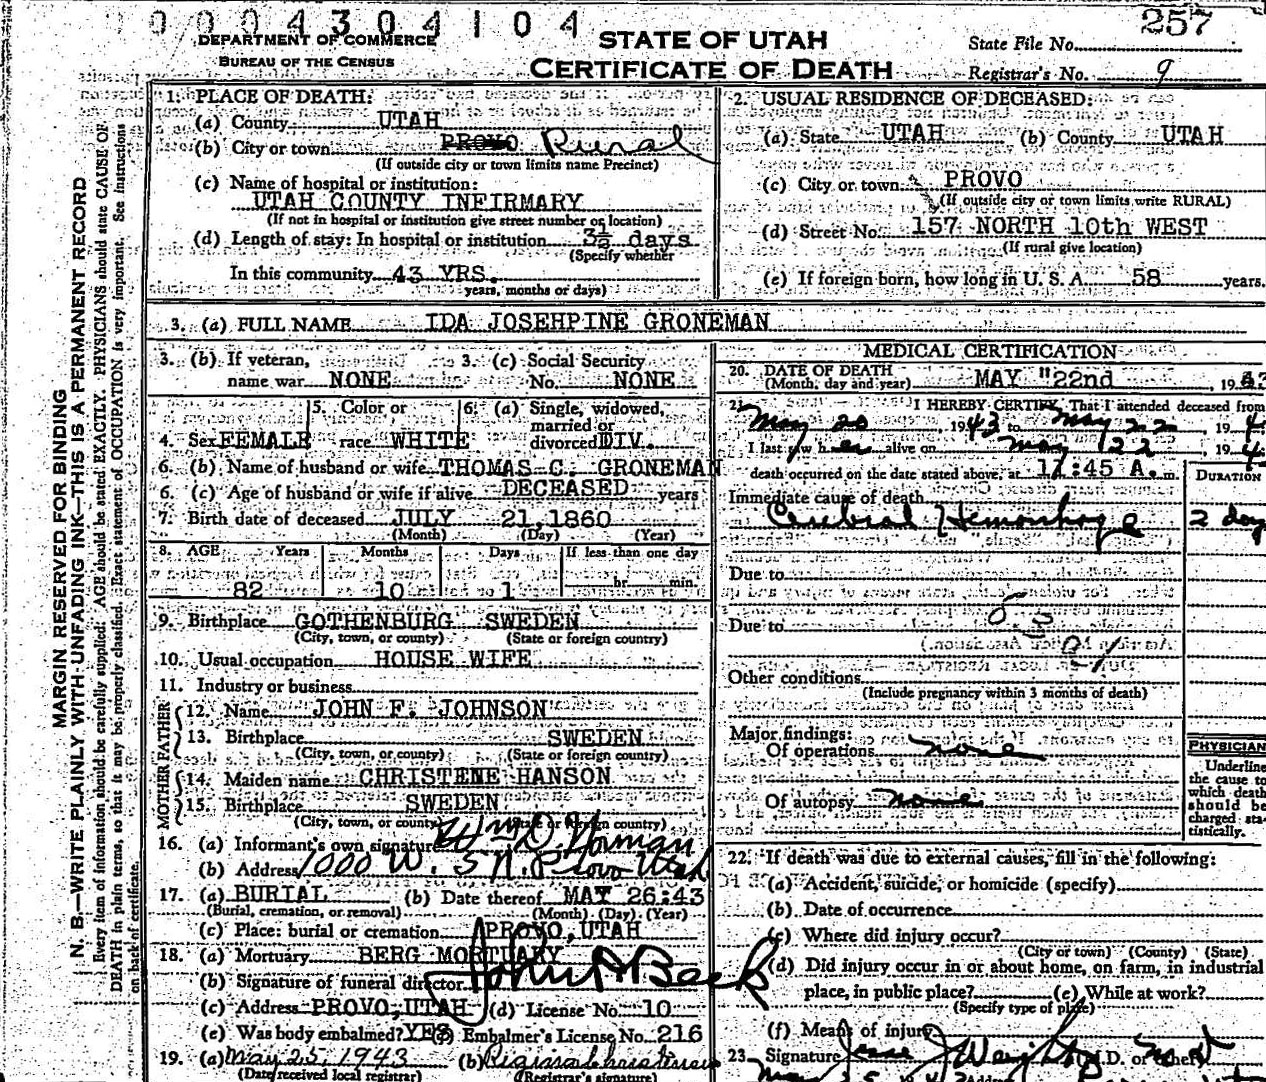 0004304104
DEPARTMENT OF COMMERCE
BUREAU OF THE CENSUS
STATE OF UTAH
CERTIFICATE OF DEATH
State File No. 257
Registrar's No. 9
MARGIN RESERVED FOR BINDING
N. B.—WRITE PLAINLY WITH UNFADING INK—THIS IS A PERMANENT RECORD
Every item of information should be carefully supplied. AGE should be stated EXACTLY. PHYSICIANS should state CAUSE OF
DEATH in plain terms, so that it may be properly classified. Exact statement of OCCUPATION is very important. See instructions
on back of certificate.
1. PLACE OF DEATH:
(a) County UTAH
(b) City or town PROVO Rural
(If outside city or town limits name Precinct)
(c) Name of hospital or institution:
UTAH COUNTY INFIRMARY
(If not in hospital or institution give street number or location)
(d) Length of stay: In hospital or institution 3½ days
(Specify whether
In this community 43 YRS.
years, months or days)
2. USUAL RESIDENCE OF DECEASED:
(a) State UTAH (b) County UTAH
(c) City or town PROVO
(If outside city or town limits write RURAL)
(d) Street No. 157 NORTH 10th WEST
(If rural give location)
(e) If foreign born, how long in U. S. A. 58 years.
3. (a) FULL NAME IDA JOSEHPINE GRONEMAN
3. (b) If veteran,
name war NONE
3. (c) Social Security
No. NONE
4. Sex FEMALE
5. Color or
race WHITE
6. (a) Single, widowed,
married or
divorced DIV.
6. (b) Name of husband or wife THOMAS C. GRONEMAN
6. (c) Age of husband or wife if alive DECEASED years
7. Birth date of deceased JULY 21,1860
(Month) (Day) (Year)
8. AGE Years Months Days If less than one day
82 10 1 hr. min.
9. Birthplace GOTHENBURG SWEDEN
(City, town, or county) (State or foreign country)
10. Usual occupation HOUSE WIFE
11. Industry or business
FATHER
12. Name JOHN F. JOHNSON
13. Birthplace SWEDEN
(City, town, or county) (State or foreign country)
MOTHER
14. Maiden name CHRISTENE HANSON
15. Birthplace SWEDEN
(City, town, or county) (State or foreign country)
16. (a) Informant's own signature Wm D. Homan
(b) Address 1000 W. 5 N. Provo Utah
17. (a) BURIAL (b) Date thereof MAY 26:43
(Burial, cremation, or removal) (Month) (Day) (Year)
(c) Place: burial or cremation PROVO, UTAH
18. (a) Mortuary BERG MORTUARY
(b) Signature of funeral director John A Beck
(c) Address PROVO, UTAH (d) License No. 10
(e) Was body embalmed? YES Embalmer's License No. 216
19. (a) May 25, 1943 (b)
(Date received local registrar) (Registrar's signature)
MEDICAL CERTIFICATION
20. DATE OF DEATH
(Month, day and year) MAY "22nd , 1943
21. I HEREBY CERTIFY, That I attended deceased from
May 20, 1943 to May 22, 194
I last saw her alive on May 22, 194
death occurred on the date stated above, at 11:45 A. m.
DURATION
Immediate cause of death
Cerebral Hemorrhage 2 day
Due to
Due to
Other conditions
(Include pregnancy within 3 months of death)
Major findings:
Of operations none
Of autopsy none
PHYSICIAN
Underline
the cause to
which death
should be
charged sta-
tistically.
22. If death was due to external causes, fill in the following:
(a) Accident, suicide, or homicide (specify)
(b) Date of occurrence
(c) Where did injury occur?
(City or town) (County) (State)
(d) Did injury occur in or about home, on farm, in industrial
place, in public place? (e) While at work?
(Specify type of place)
(f) Means of injury
23. Signature M.D. or other